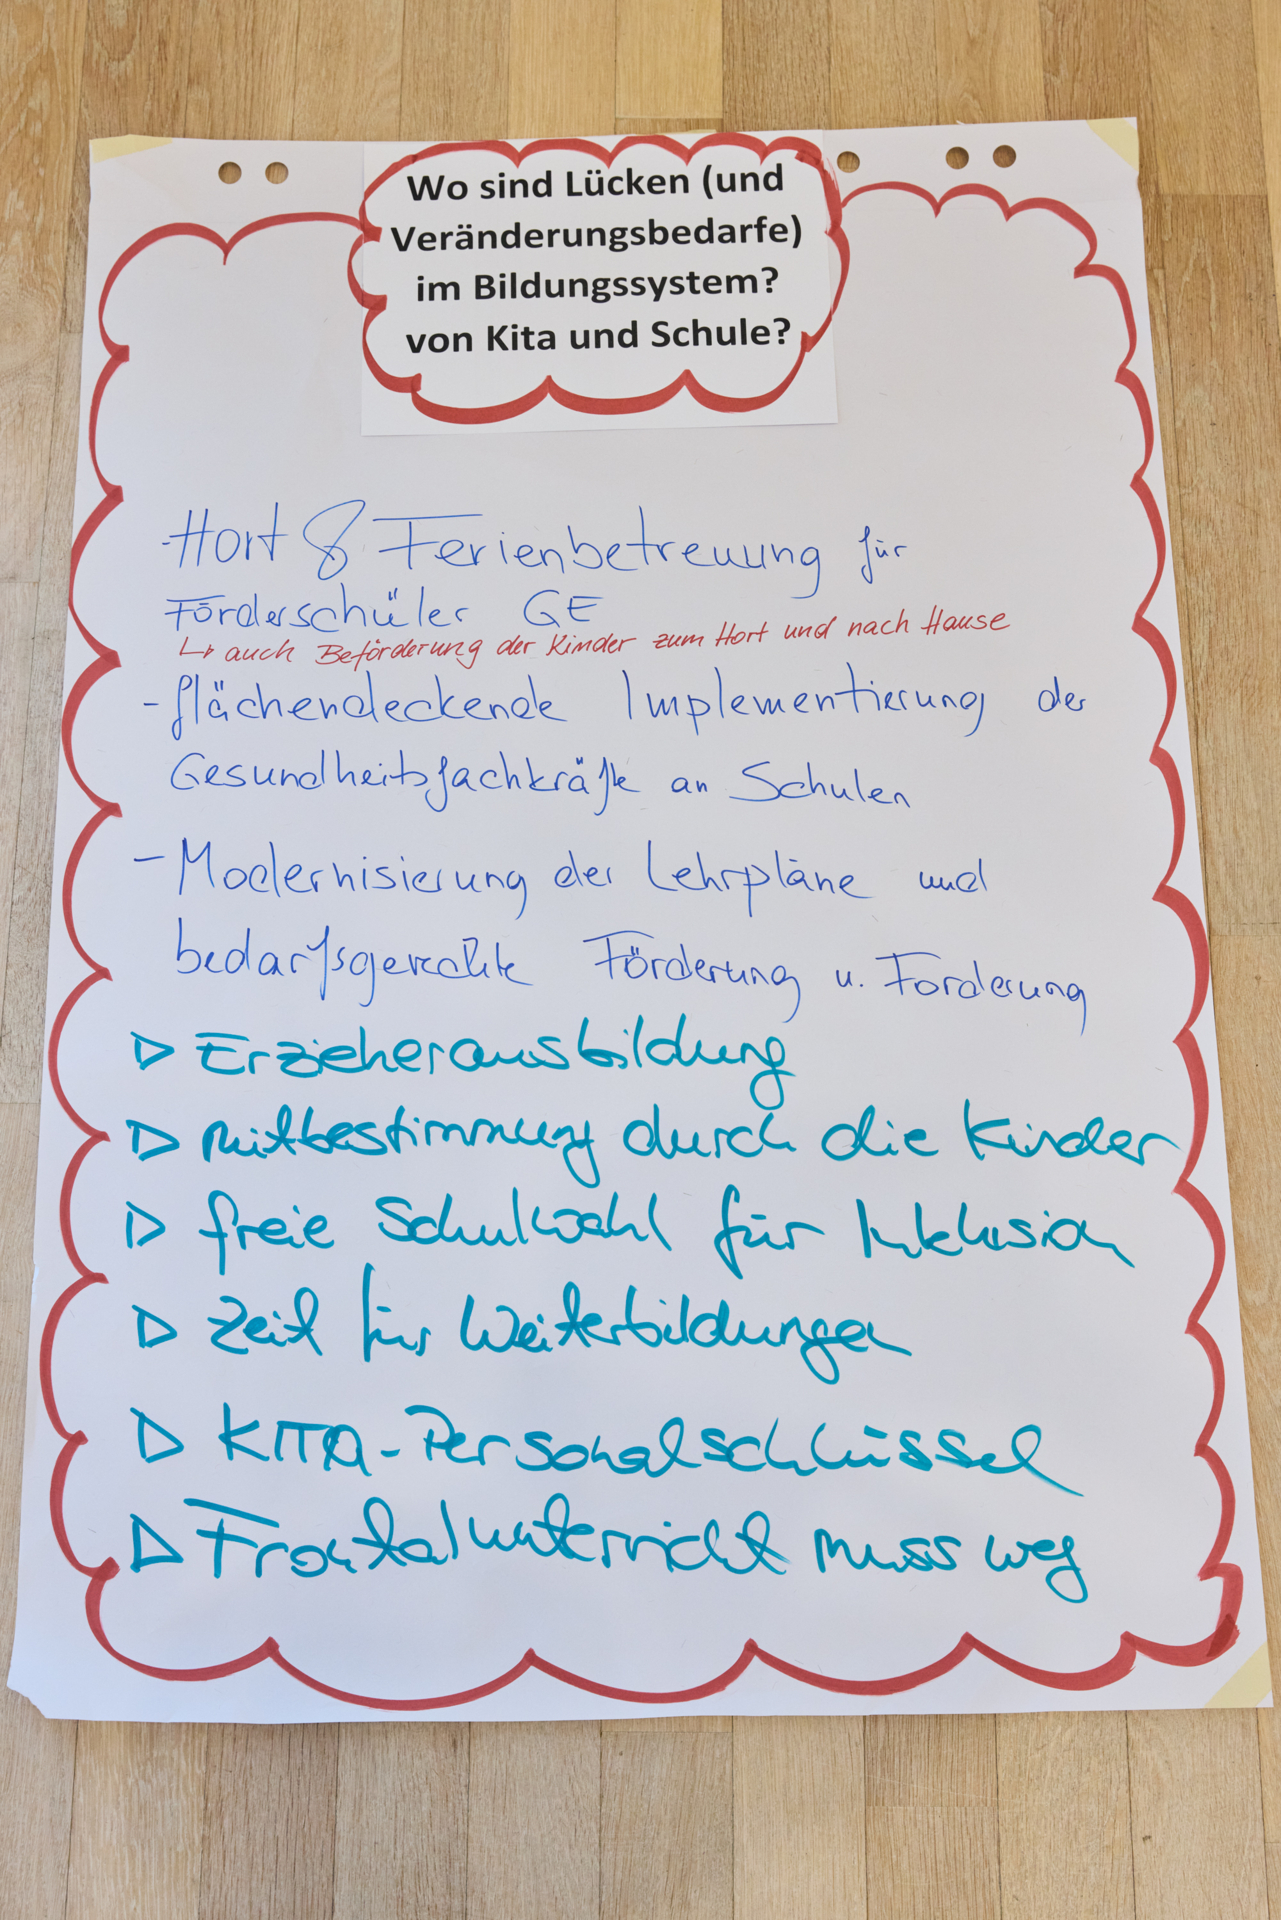 Wo sind Lücken (und
Veränderungsbedarfe)
im Bildungssystem?
von Kita und Schule?
- Hort & Ferienbetreuung für
Förderschüler GE
↳ auch Beförderung der Kinder zum Hort und nach Hause
- flächendeckende Implementierung der
Gesundheitsfachkräfte an Schulen
- Modernisierung der Lehrpläne und
bedarfsgerechte Förderung u. Forderung
▷ Erzieherausbildung
▷ Mitbestimmung durch die Kinder
▷ freie Schulwahl für Inklusion
▷ Zeit für Weiterbildungen
▷ KITA-Personalschlüssel
▷ Frontalunterricht muss weg